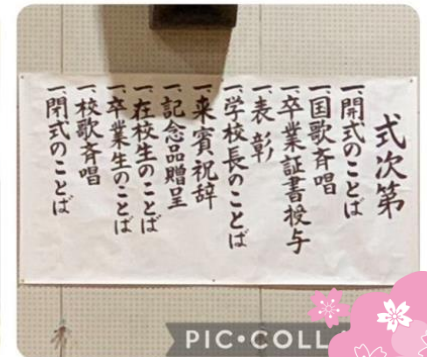 式次第
一、開式のことば
一、国歌斉唱
一、卒業証書授与
一、表彰
一、学校長のことば
一、来賓祝辞
一、記念品贈呈
一、在校生のことば
一、卒業生のことば
一、校歌斉唱
一、閉式のことば
PIC•COLL